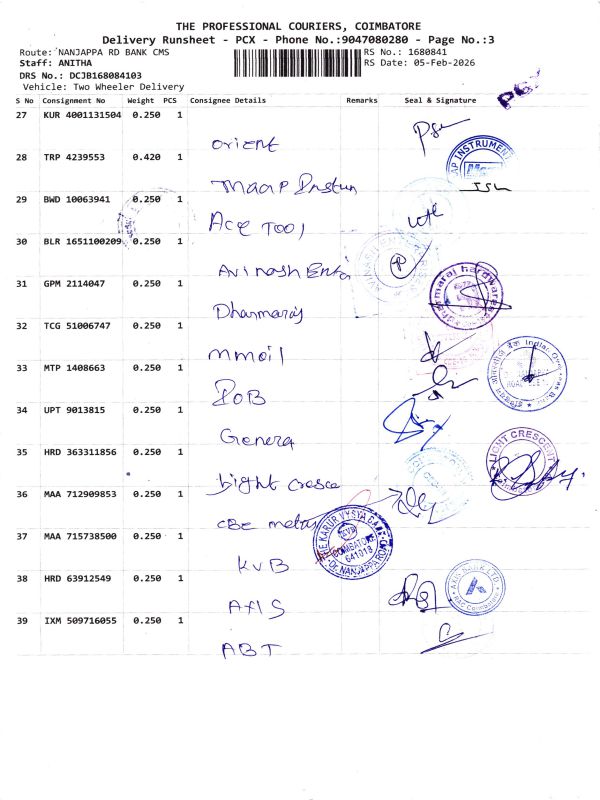 THE PROFESSIONAL COURIERS, COIMBATORE
Delivery Runsheet - PCX - Phone No.:9047080280 - Page No.:3
Route: NANJAPPA RD BANK CMS RS No.: 1680841
Staff: ANITHA RS Date: 05-Feb-2026
DRS No.: DCJB168084103
Vehicle: Two Wheeler Delivery
S No Consignment No Weight PCS Consignee Details Remarks Seal & Signature
27 KUR 4001131504 0.250 1
orient
28 TRP 4239553 0.420 1
INSTRUMENT
Maap Instrum
29 BWD 10063941 0.250 1
Ace Tool
30 BLR 1651100209 0.250 1
Avinash Enter
31 GPM 2114047 0.250 1
Dharmaraj hardwares
Dharmaraj
32 TCG 51006747 0.250 1
mmoil
33 MTP 1408663 0.250 1
IOB
34 UPT 9013815 0.250 1
Genera
35 HRD 363311856 0.250 1
LIGHT CRESCENT
bight cresce
36 MAA 712909853 0.250 1
CBE metal
37 MAA 715738500 0.250 1
THE KARUR VYSYA BANK
KVB
COIMBATORE
641018
NANJAPPA ROAD
KVB
38 HRD 63912549 0.250 1
AXIS BANK LTD.
Axis
39 IXM 509716055 0.250 1
ABT